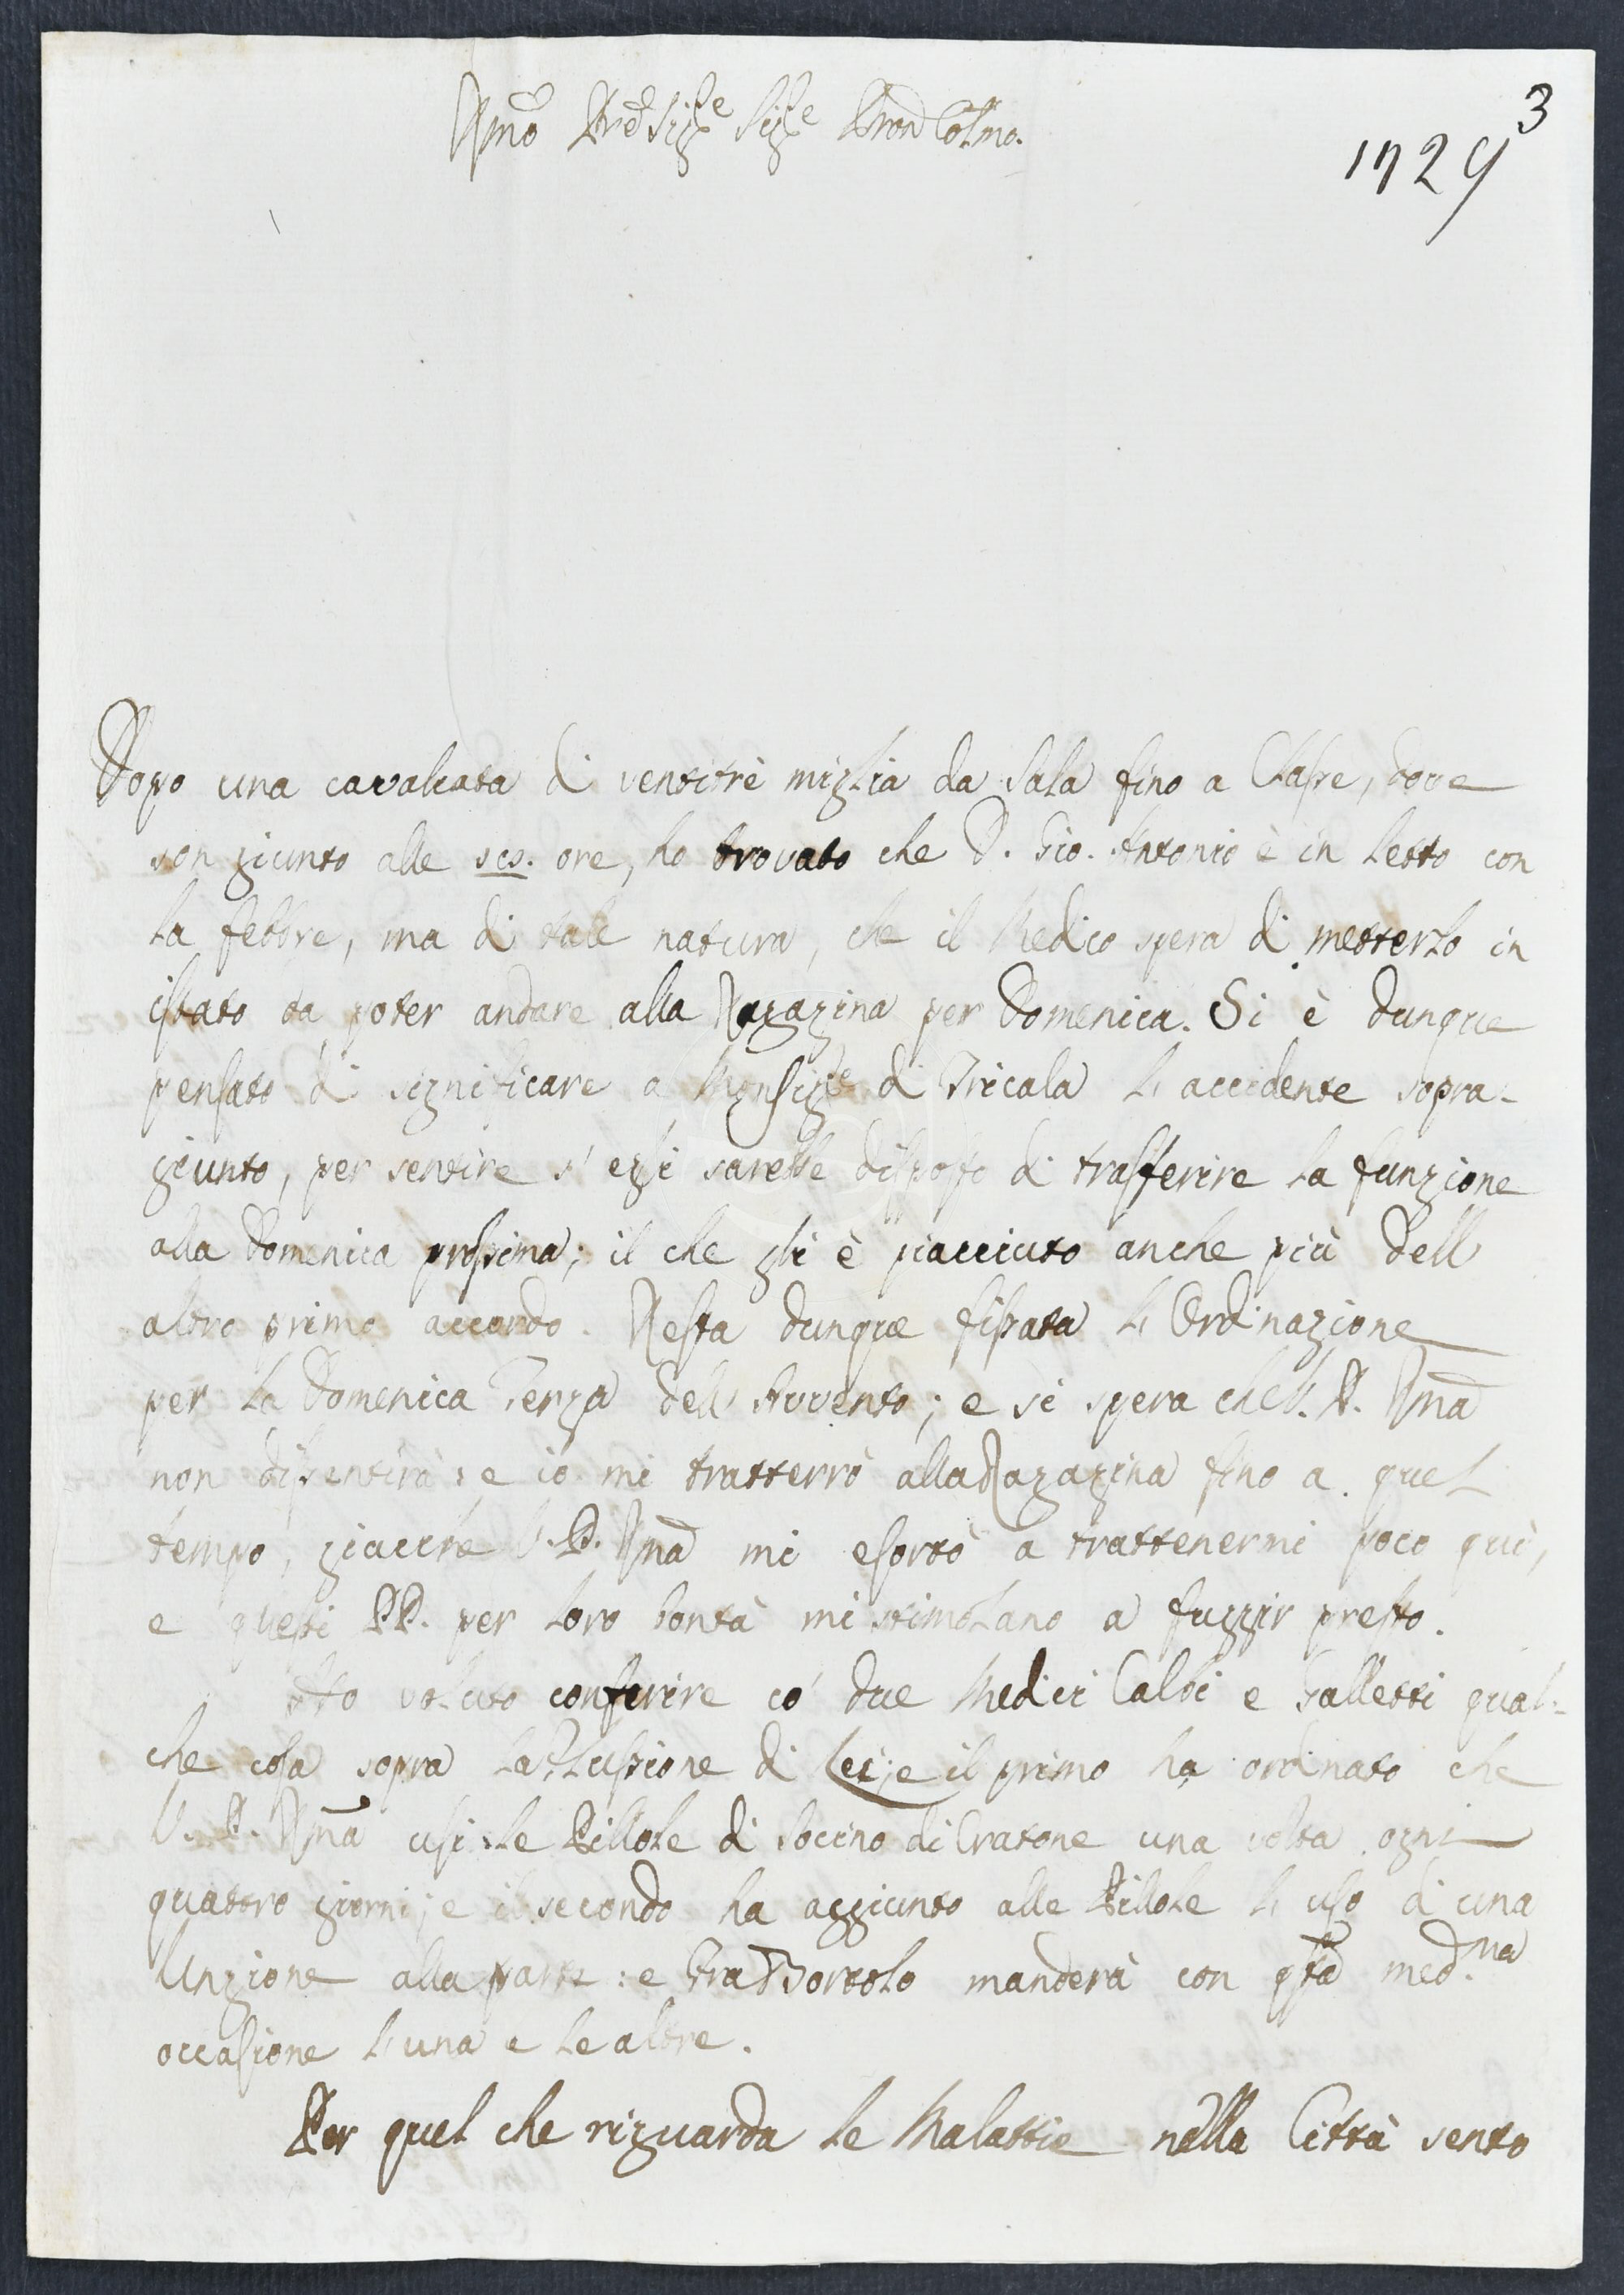 Rmo Pre Sig.e Sig.e Pron Colmo.
3
1729
Dopo una cavalcata di ventitrè miglia da Sala fino a Classe, dove
son giunto alle ore, ho trovato che D. Gio. Antonio è in letto con
la febbre, ma di tale natura, che il Medico spera di metterlo in
istato da poter andare alla Ragazzina per Domenica. Si è dunque
pensato di significare a Monsig.e di Tricala l'accidente sopra-
giunto, per sentire s'egli sarebbe disposto di trasferire la funzione
alla Domenica prossima; il che gli è piacciuto anche più dell
altro primo accordo. Resta dunque fissata l'Ordinazione
per la Domenica Terza dell'Avvento; e si spera che V. P. Rma
non dissentirà: e io mi tratterrò alla Ragazzina fino a quel
tempo, giacche V. P. Rma mi esortò a trattenermi poco quì,
e questi PP. per loro bontà mi stimolano a fuggir presto.
Ho voluto conferire co' due Medici Calbi e Galletti qual-
che cosa sopra la Flussione di Lei; e il primo ha ordinato che
V. P. Rma usi le Pillole di Socino di Cratone una volta ogni
quattro giorni; e il secondo ha aggiunto alle Pillole l'uso di una
Unzione alla parte: e Fra Bortolo manderà con qsta med.ma
occasione l'una e le altre.
Per quel che riguarda le Malattie nella Città sento